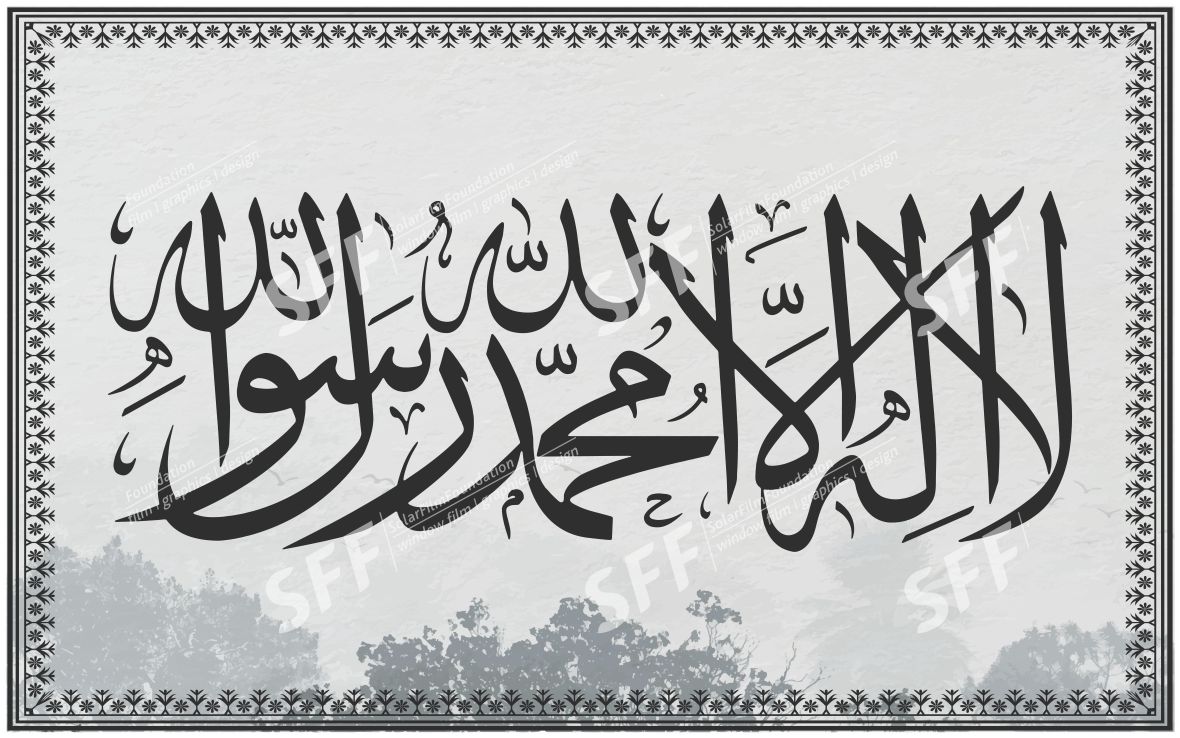 لا إله إلا الله محمد رسول الله
SFF SolarFilmFoundation
window film | graphics | design